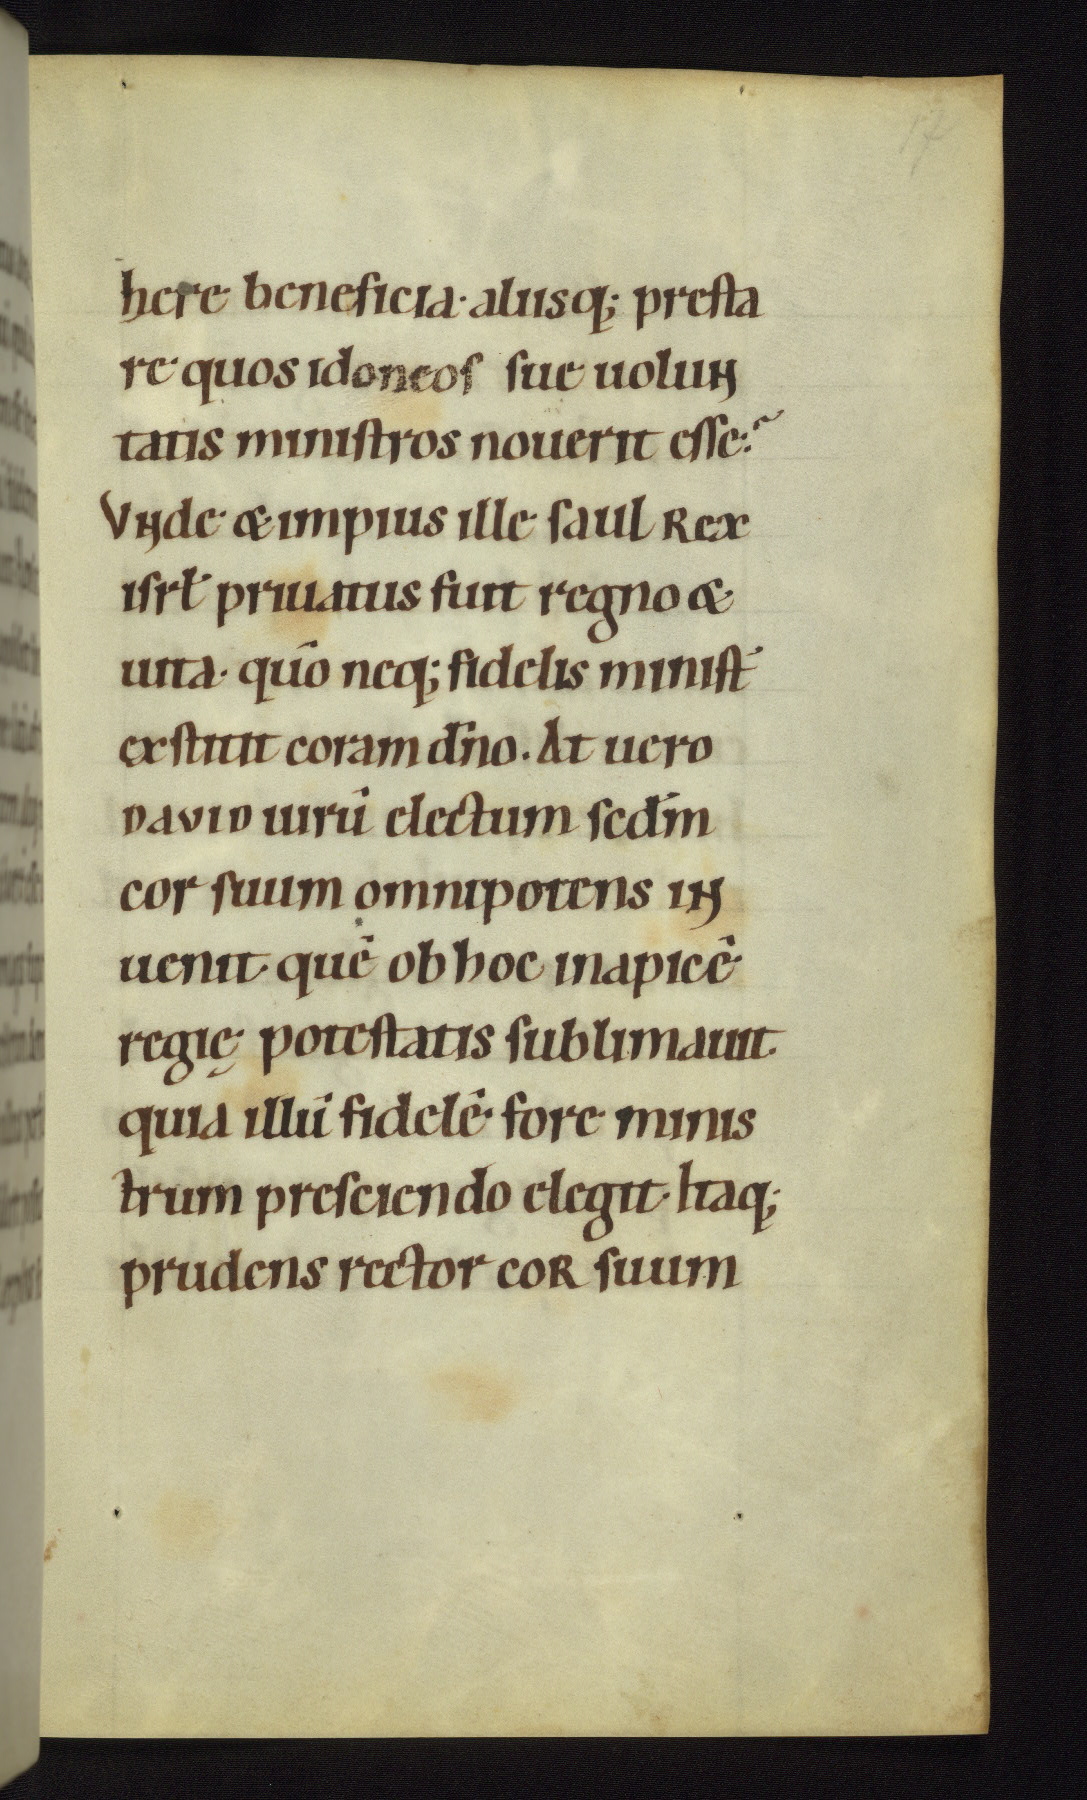 17
here beneficia· aliisq; presta
re quos idoneos sue uolun
tatis ministros nouerit esse.
Vnde & impius ille saul Rex
isrł priuatus fuit regno &
uita· quō neq; fidelis minist̄
exstitit coram dn̄o. At uero
DAVID uirū electum secd̄m
cor suum omnipotens in
uenit· quē ob hoc in apicē
regię potestatis sublimauit·
quia illū fidelē fore minis
trum presciendo elegit· Itaq;
prudens rector coR suum